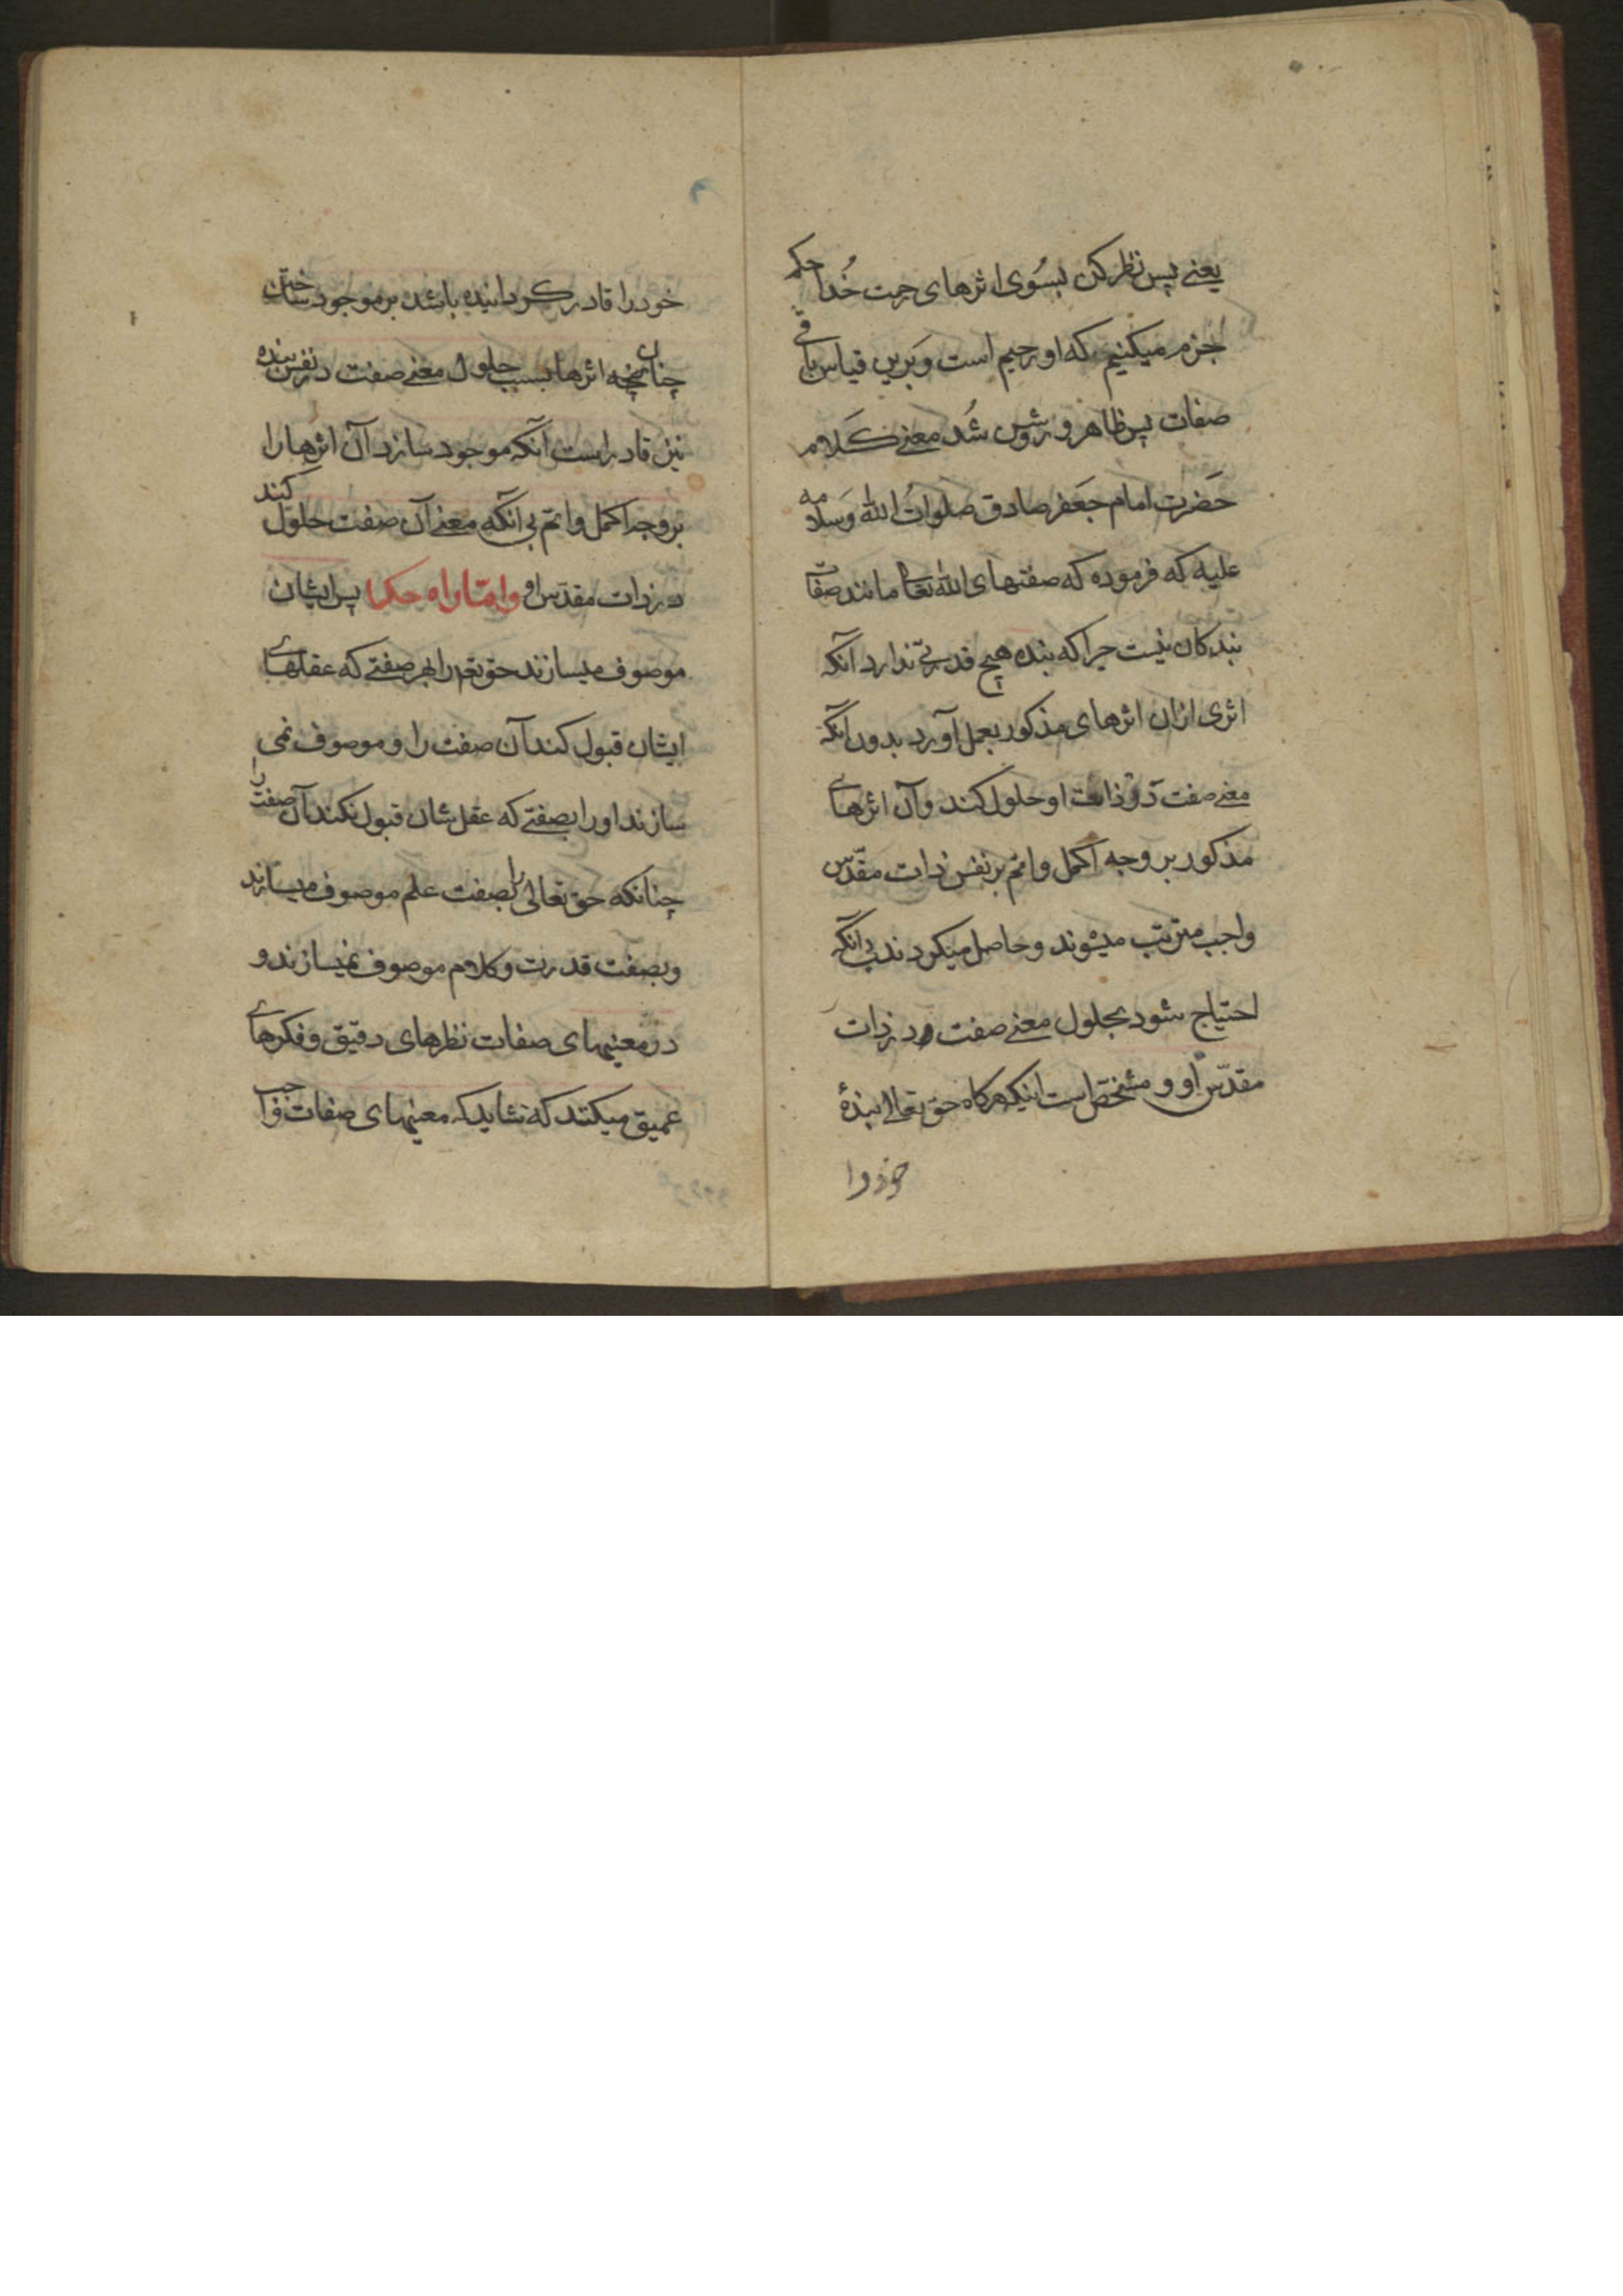 یعنے پس نظر کن بسُوی اثرهای رحمت خُدا حکم
جزم میکنیم که او رحیم است وَ برین قیاس باقی
صفات پس ظاهر و روشن شُد معنے کَلام
حَضرت امام جَعفر صادق صلواتُ اللّٰه وَسلامه
علیه که فرموده که صفتهای اللّٰه تعا مانند صفات
بندکان نیست چرا که بنده هیچ قدرتی ندارد آنکه
اثری ازان اثرهای مذکور بعمل آورد بدون آنکه
معنے صفت در ذات او حلول کند و آن اثرهای
مذکور بر وجه اکمل و اتم بر نفس ذات مقدّس
واجب مترتب میشوند و حاصل میکردند بی آنکه
احتیاج شود بحلول معنے صفت در ذات
مقدّس او و مشخّص است اینکه هرکاه حق تعالی بندهٔ
خود را
خود را قادر کردانیده باشد بر موجود ساختن
چنان نچه اثرها بسبب حلول معنے صفت در نفس بنده
نیز قادر است آنکه موجود سازد آن اثرها را
بر وجه اکمل و اتم بی آنکه معنے آن صفت حلول کند
در ذات مقدّس او و امّا راه حکما پس ایشان
موصوف میسازند حق تعم را بهر صفتے که عقلهای
ایشان قبول کند آن صفت را و موصوف نمی
سازند او را بصفتے که عقل شان قبول نکند آن صفت را
چنانکه حق تعالی را بصفت علم موصوف میسازند
و بصفت قدرت و کلام موصوف نمیسازند و
در معنیهای صفات نظرهای دقیق و فکرهای
عمیق میکنند که نشاید که معنیهای صفات واجب